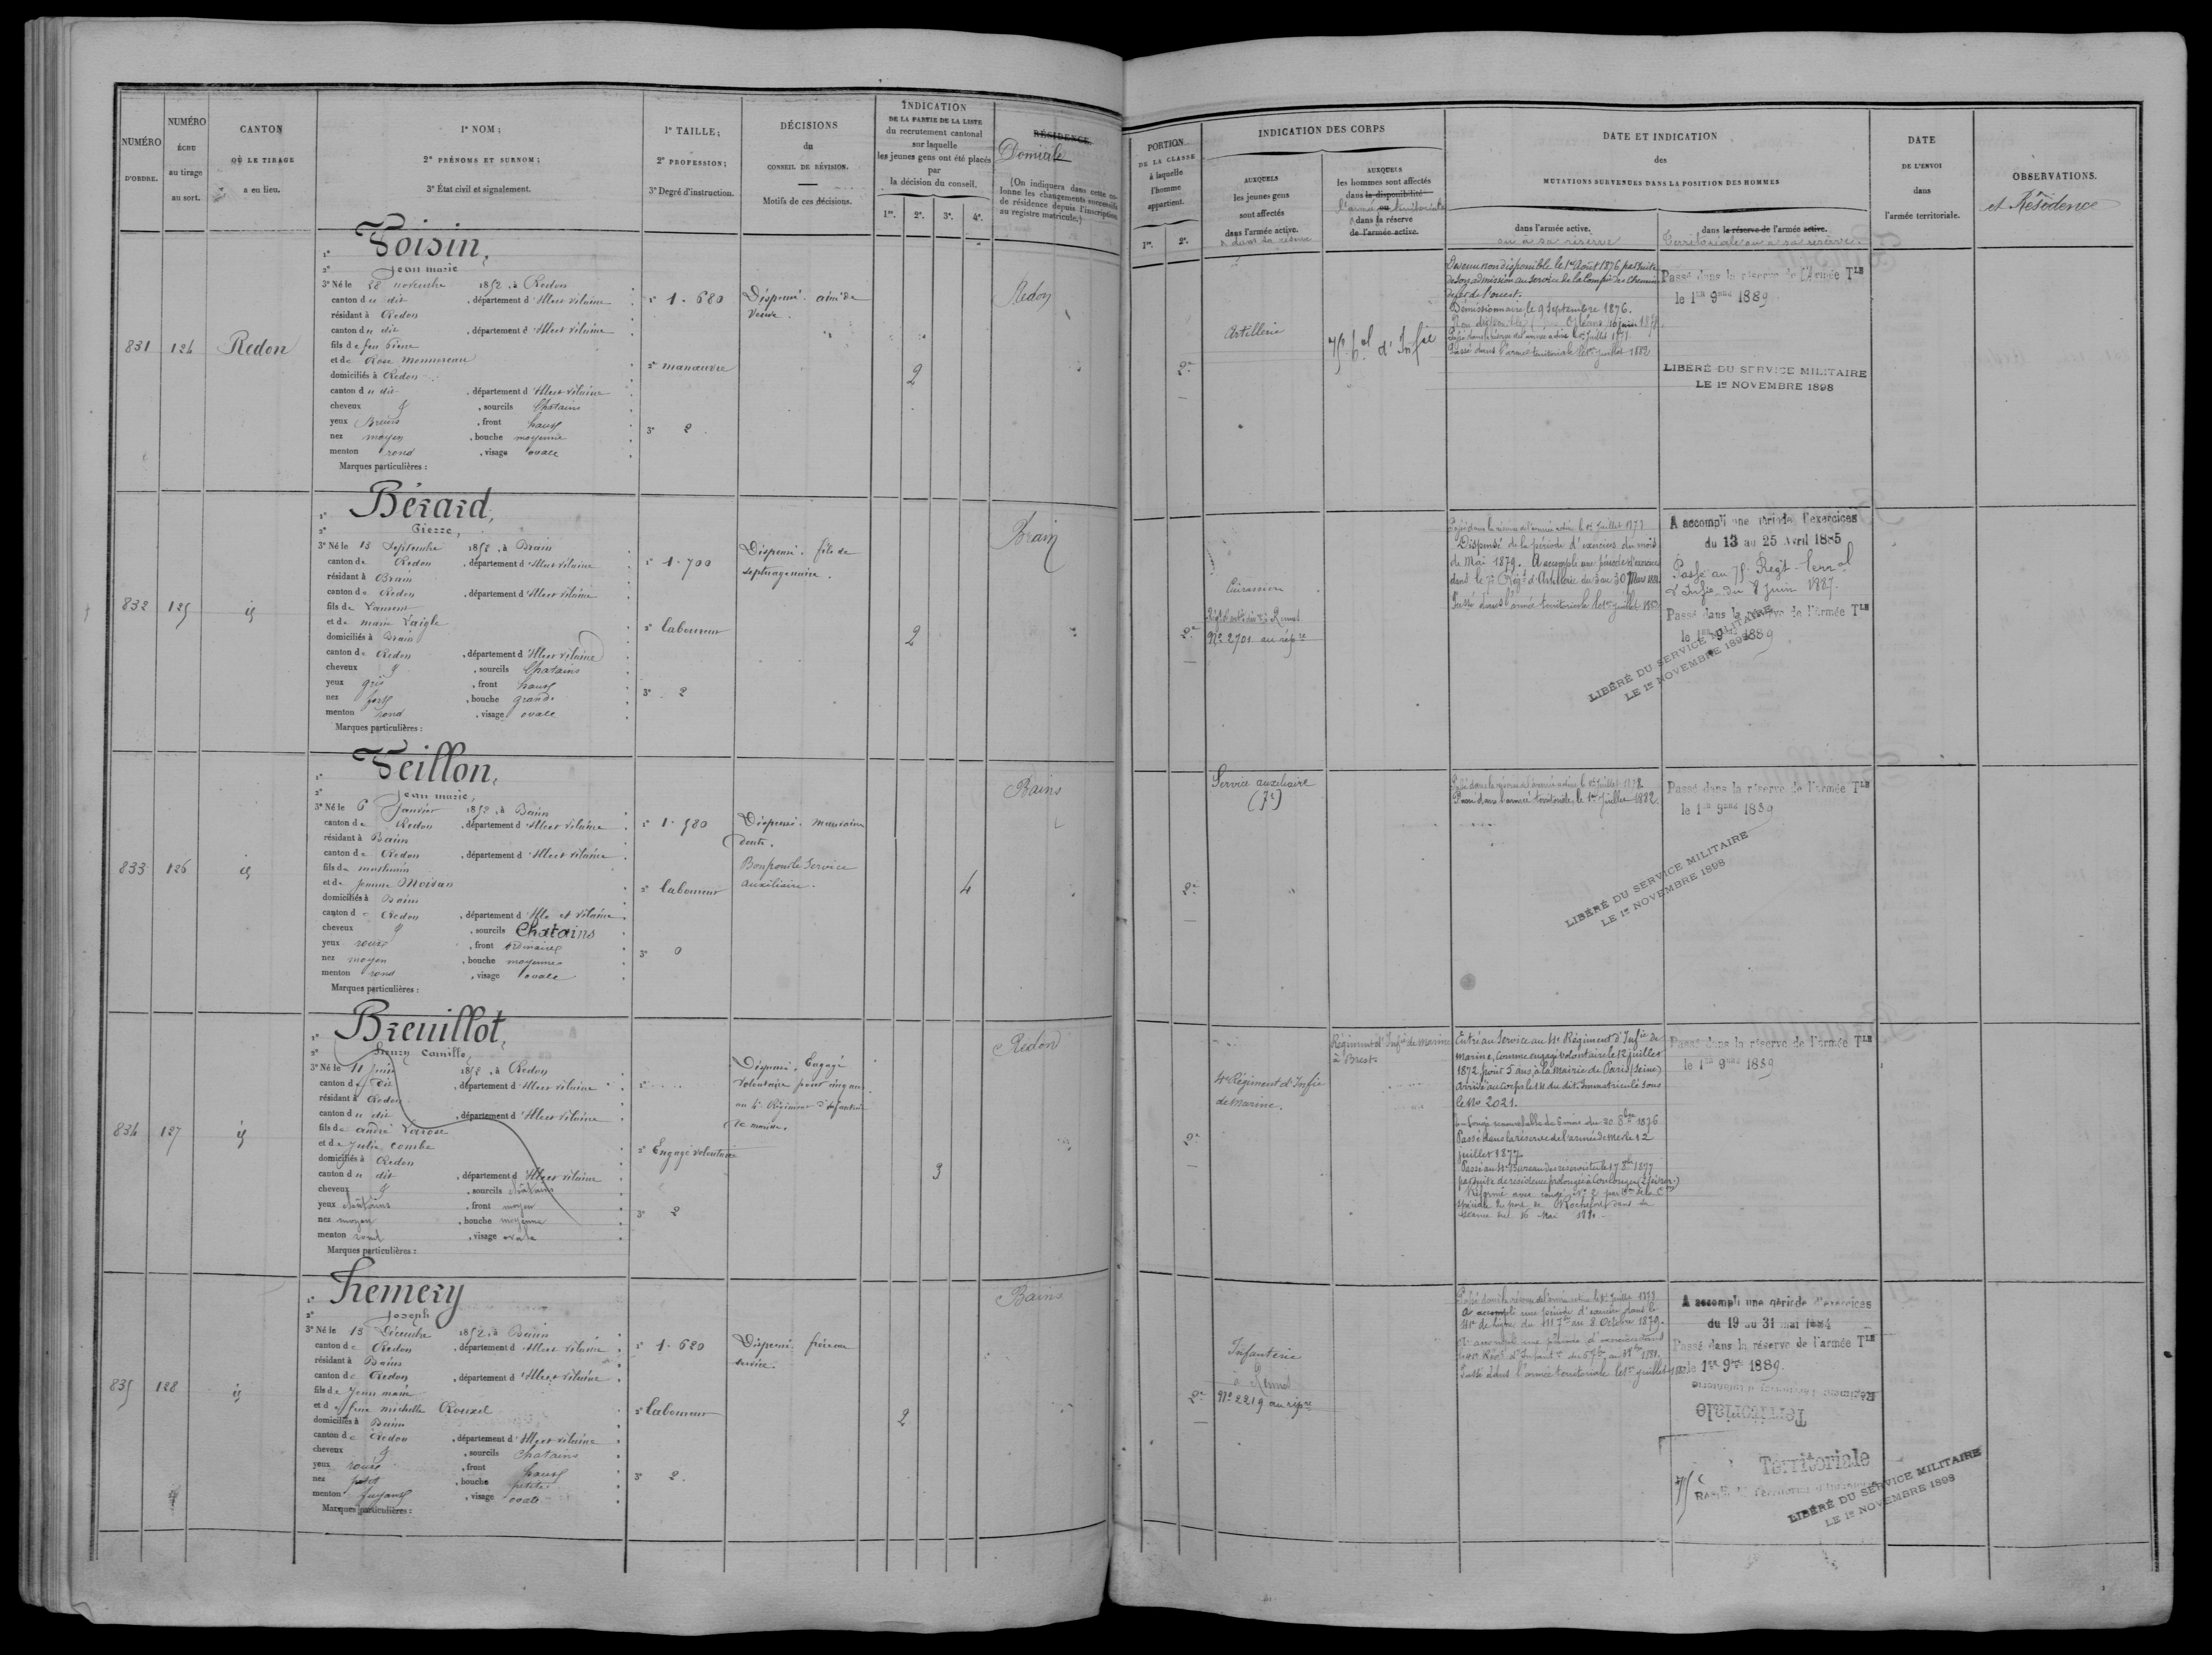 NUMÉRO
D'ORDRE.
NUMÉRO
ÉCHU
au tirage
au sort.
CANTON
OÙ LE TIRAGE
a eu lieu.
1° NOM;
2° PRÉNOMS ET SURNOM;
3° État civil et signalement.
1° TAILLE;
2° PROFESSION;
3° Degré d'instruction.
DÉCISIONS
du
CONSEIL DE RÉVISION.
Motifs de ces décisions.
INDICATION
DE LA PARTIE DE LA LISTE
du recrutement cantonal
sur laquelle
les jeunes gens ont été placés
par
la décision du conseil.
1re. 2e. 3e. 4e.
RÉSIDENCE
Domicile
(On indiquera dans cette co-
lonne les changements successifs
de résidence depuis l'inscription
au registre matricule.)
PORTION
DE LA CLASSE
à laquelle
l'homme
appartient.
1re. 2e.
INDICATION DES CORPS
AUXQUELS
les jeunes gens
sont affectés
dans l'armée active.
& dans sa réserve
AUXQUELS
les hommes sont affectés
dans la disponibilité
l'armée ou territoriale
& dans sa réserve
de l'armée active.
DATE ET INDICATION
des
MUTATIONS SURVENUES DANS LA POSITION DES HOMMES
dans l'armée active.
ou à sa réserve
dans la réserve de l'armée active.
Territoriale ou à sa réserve.
DATE
DE L'ENVOI
dans
l'armée territoriale.
OBSERVATIONS.
et Résidence
831 124 Redon
1° Voisin,
2° Jean marie
3° Né le 28 novembre 1852, à Redon
canton du dit, département d'Ille et Vilaine
résidant à Redon
canton du dit, département d'Ille et Vilaine
fils de feu Pierre
et de Rose Monnereau
domiciliés à Redon
canton du dit, département d'Ille et Vilaine
cheveux &, sourcils Chatains
yeux Bruns, front haut
nez moyen, bouche moyenne
menton rond, visage ovale
Marques particulières :
1° 1.680
2° manoeuvre
3° 2
Dispensé. ainé de
Veuve.
2
Redon
2e
Artillerie
75e tal d'Infie
Devenu non disponible le 1er Août 1876 par suite
de son admission au service de la Compie des Chemins
de fer de l'ouest.
Démissionnaire le 9 Septembre 1876.
Passé dans l'armée territoriale le 1er juillet 1882
Passé dans la réserve de l'Armée Tle
le 1er 9bre 1889
LIBÉRÉ DU SERVICE MILITAIRE
LE 1er NOVEMBRE 1898
832 125 id
1° Bérard,
2° Pierre,
3° Né le 13 Septembre 1852, à Brain
canton de Redon, département d'Ille et Vilaine
résidant à Brain
canton de Redon, département d'Ille et Vilaine
fils de Laurent
et de marie Laigle
domiciliés à Brain
canton de Redon, département d'Ille et Vilaine
cheveux &, sourcils Chatains
yeux gris, front haut
nez fort, bouche grande
menton rond, visage ovale
Marques particulières :
1° 1.700
2° laboureur
3° 2
Dispensé. fils de
septuagénaire.
2
Brain
2e
Cuirassiers
No 2701 au répre
Passé dans la réserve de l'armée active le 1er Juillet 1877
Dispensé de la période d'exercices du mois
de Mai 1879. A accompli une période d'exercices
dans le 7e Régt d'Artillerie du 3 au 30 Mars 1881
Passé dans l'armée territoriale le 1er juillet 1882
A accompli une période d'exercices
du 13 au 25 Avril 1885
Passé au 75e Régt terral
d'Infie du 8 Juin 1887.
Passé dans la réserve de l'Armée Tle
le 1er 9bre 1889
LIBÉRÉ DU SERVICE MILITAIRE
LE 1er NOVEMBRE 1898
833 126 id
1° Veillon,
2° Jean marie,
3° Né le 6 Janvier 1852, à Bain
canton de Redon, département d'Ille et Vilaine
résidant à Bain
canton de Redon, département d'Ille et Vilaine
fils de mathurin
et de Jeanne Moisan
domiciliés à Bain
canton de Redon, département d'Ille et Vilaine
cheveux &, sourcils Chatains
yeux roux, front ordinaire
nez moyen, bouche moyenne
menton rond, visage ovale
Marques particulières :
1° 1.580
2° laboureur
3° 0
Dispensé. mauvaise
dents.
Bon pour le Service
auxiliaire.
4
Bains
2e
Service auxiliaire
Passé dans la réserve de l'armée active le 1er Juillet 1878
Passé dans l'armée territoriale le 1er Juillet 1882.
Passé dans la réserve de l'Armée Tle
le 1er 9bre 1889
LIBÉRÉ DU SERVICE MILITAIRE
LE 1er NOVEMBRE 1898
834 127 id
1° Breuillot,
2° henry Camille,
3° Né le 11 Juin 1852, à Redon
canton du dit, département d'Ille et Vilaine
résidant à Redon
canton du dit, département d'Ille et Vilaine
fils de andré Larose
et de Julie Combe
domiciliés à Redon
canton du dit, département d'Ille et Vilaine
cheveux &, sourcils chatains
yeux chatains, front moyen
nez moyen, bouche moyenne
menton rond, visage ovale
Marques particulières :
1°
2° Engagé volontaire
3° 2
Dispensé. Engagé
Volontaire pour cinq ans
au 4e Régiment d'Infanterie
de marine.
3
Redon
2e
4e Régiment d'Infie
de Marine.
Régiment d'Infie de Marine
à Brest
Entré au Service au 4e Régiment d'Infie de
marine, comme engagé volontaire le 12 juillet
1872 pour 5 ans à la Mairie de Paris (Seine)
arrivé au corps le 14 du dit. Immatriculé sous
le No 2021.
Congé renouvelable de 6 mois du 20 8bre 1876
Passé dans la réserve de l'armée de mer le 12
juillet 1877.
Passé au 4e Bureau des réservistes le 17 8bre 1877
par suite de résidence prolongée à Coulonges
Réformé avec congé No 2 par Don de la Con
spéciale du port de Rochefort dans sa
séance du 16 Mai 1881.
Passé dans la réserve de l'Armée Tle
le 1er 9bre 1889
835 128 id
1° hemery
2° Joseph
3° Né le 15 Décembre 1852, à Bain
canton de Redon, département d'Ille et Vilaine
résidant à Bains
canton de Redon, département d'Ille et Vilaine
fils de Jean marie
et de feue michelle Rouxel
domiciliés à Bain
canton de Redon, département d'Ille et Vilaine
cheveux &, sourcils Chatains
yeux roux, front haut
nez petit, bouche petite
menton fuyant, visage ovale
Marques particulières :
1° 1.620
2° laboureur
3° 2.
Dispensé. frère au
service.
2
Bains
2e
Infanterie
No 2219 au répre
Passé dans la réserve de l'armée active le 1er Juillet 1877
A accompli une période d'exercices dans le
41e de ligne du 11 7bre au 8 Octobre 1879.
Passé dans l'armée territoriale le 1er juillet 1882
A accompli une période d'exercices
du 19 au 31 mai 1884
Passé dans la réserve de l'armée Tle
le 1er 9bre 1889.
Territoriale
75e
Territoriale
Régiment Territorial d'Infanterie
LIBÉRÉ DU SERVICE MILITAIRE
LE 1er NOVEMBRE 1898